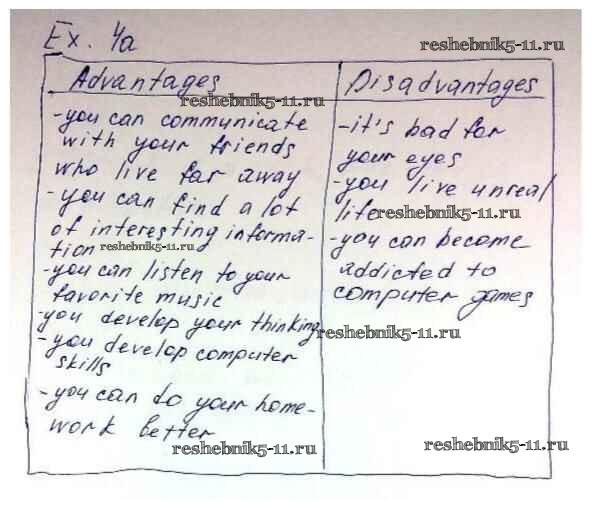 Ex. 4a
reshebnik5-11.ru
Advantages
reshebnik5-11.ru
-you can communicate
with your friends
who live far away
-you can find a lot
of interesting informa-
tion reshebnik5-11.ru
-you can listen to your
favorite music
-you develop your thinking
-you develop computer
skills
-you can do your home-
work better
reshebnik5-11.ru
Disadvantages
-it's bad for
your eyes
-you live unreal
life reshebnik5-11.ru
-you can become
addicted to
computer games
reshebnik5-11.ru
reshebnik5-11.ru